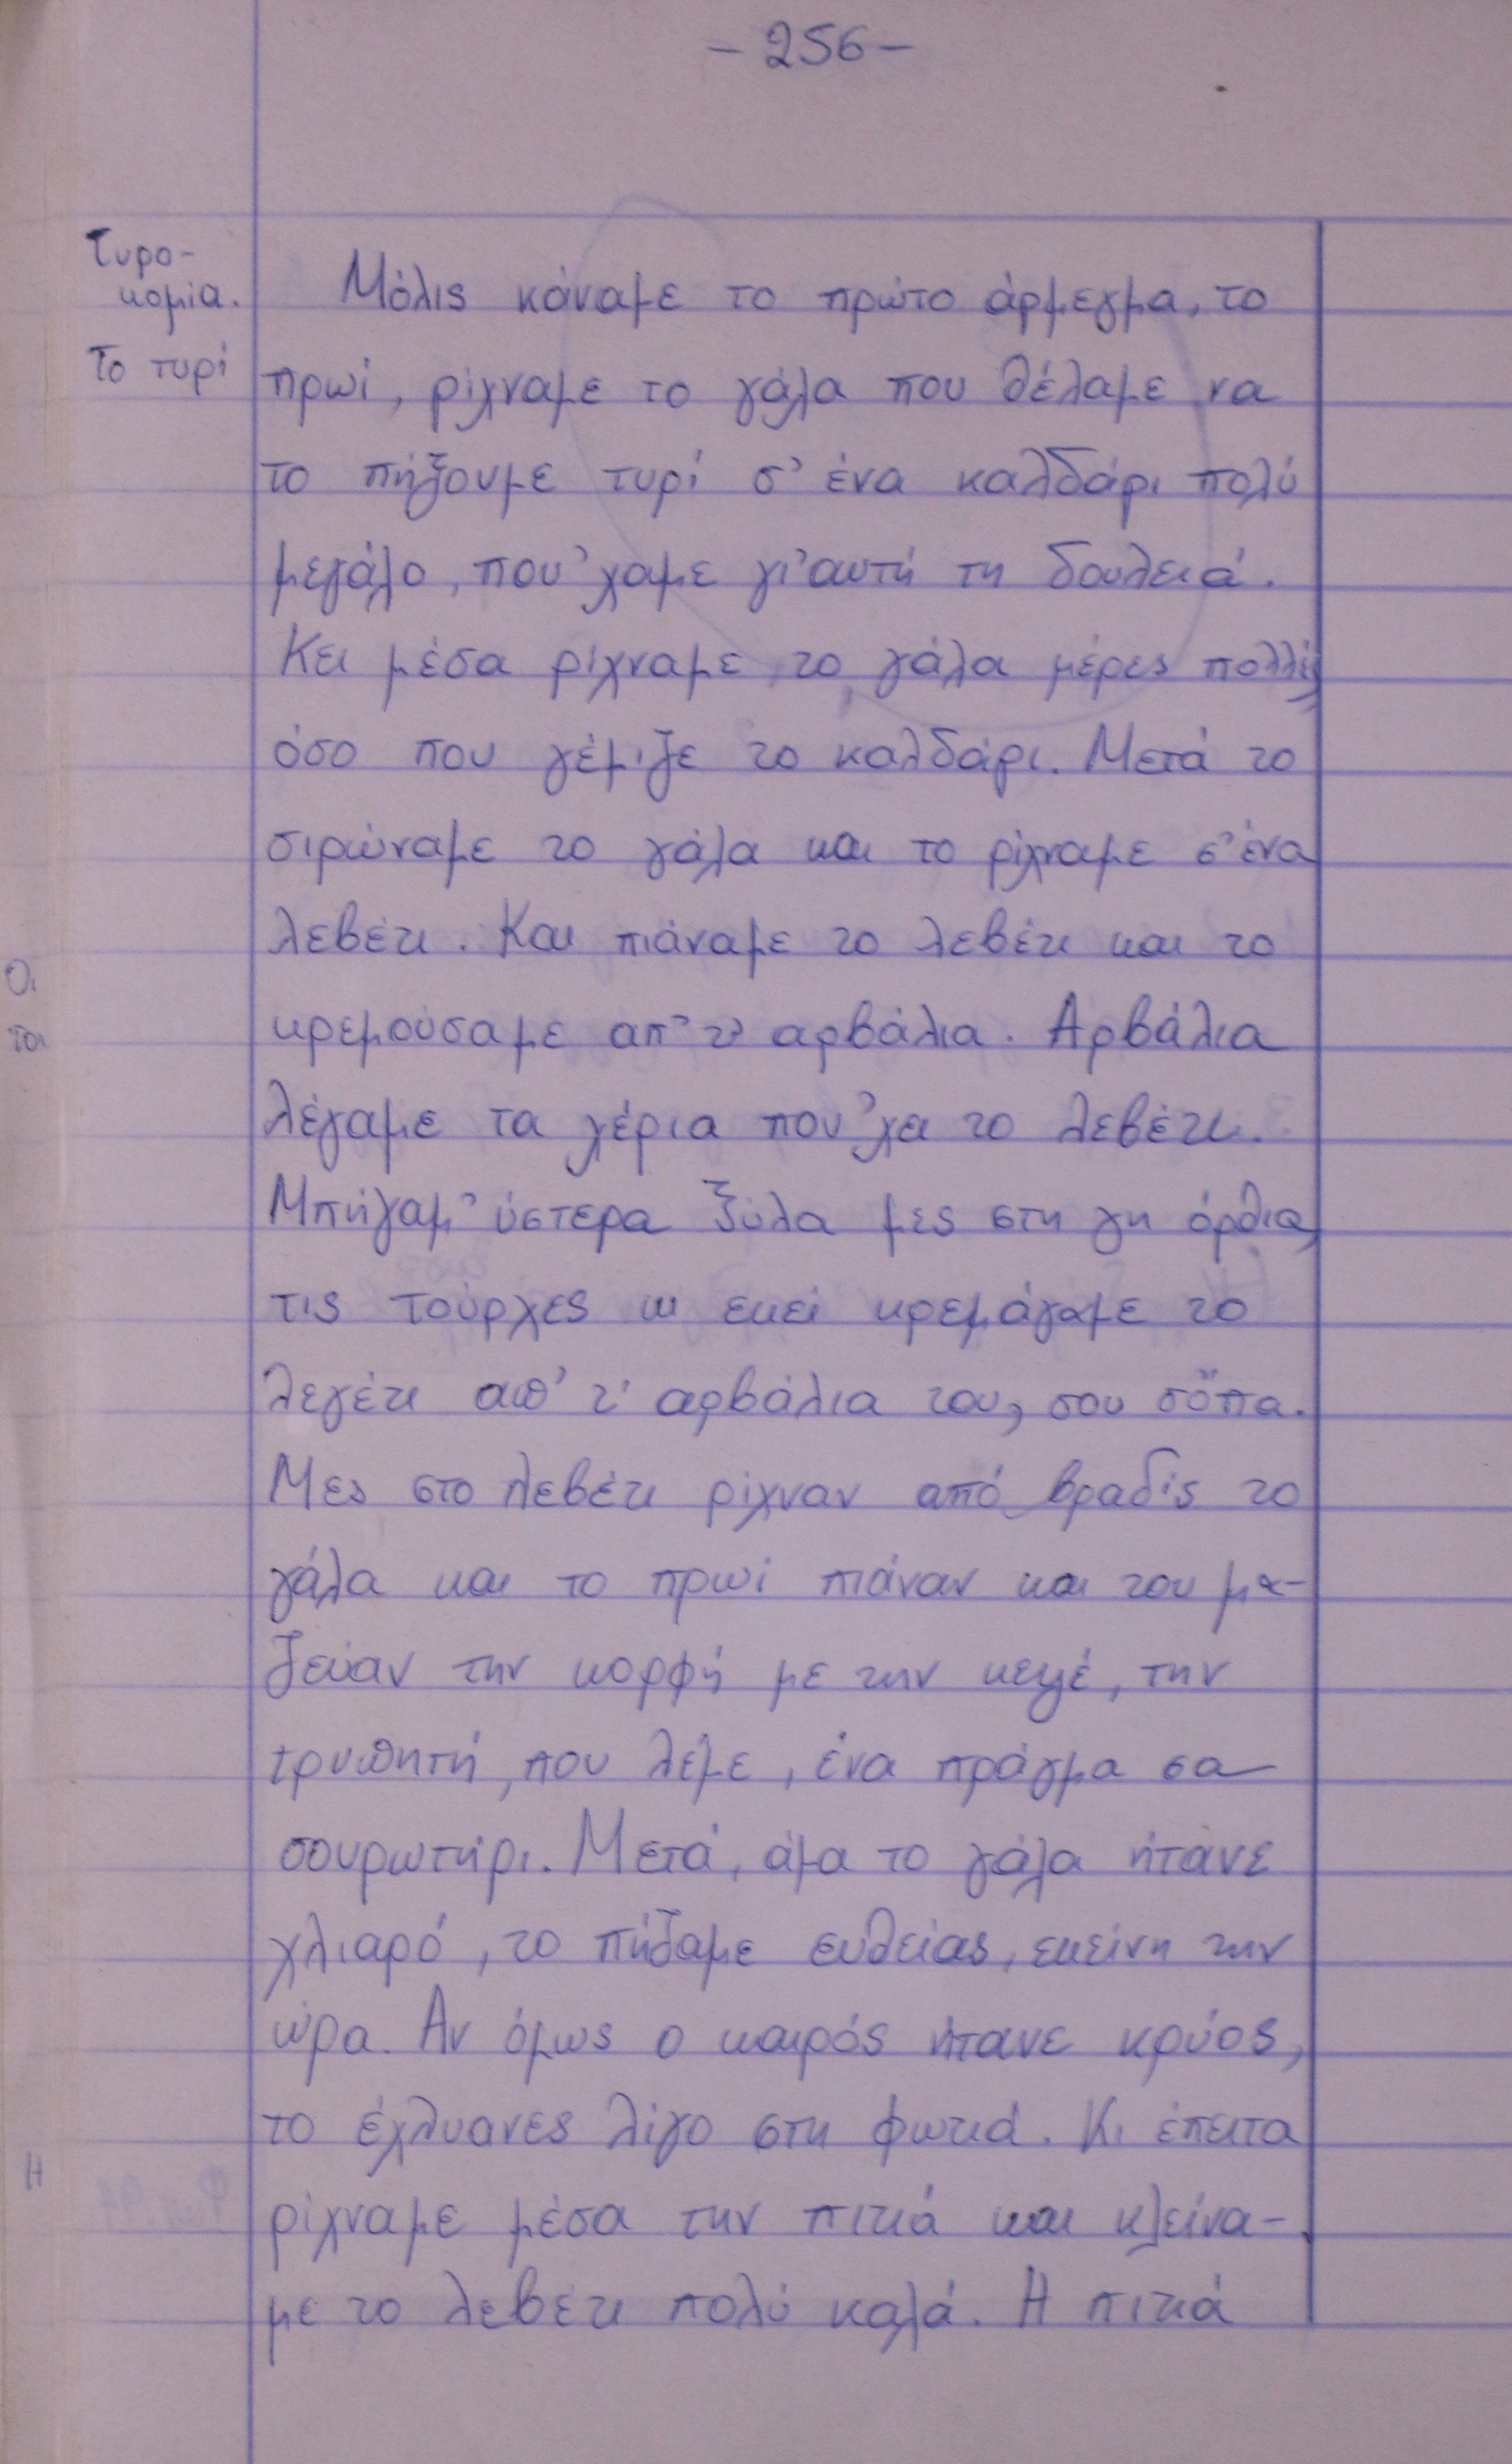 - 256 -
Τυρο-
κομία.
Το τυρί
Μόλις κάναμε το πρώτο άρμεγμα, το
πρωί, ρίχναμε το γάλα που θέλαμε να
το πήξουμε τυρί σ' ένα καλδάρι πολύ
μεγάλο, που 'χαμε γι' αυτή τη δουλειά.
Κει μέσα ρίχναμε το γάλα μέρες πολλές
όσο που γέμιζε το καλδάρι. Μετά το
σιρώναμε το γάλα και το ρίχναμε σ' ένα
λεβέτι. Και πιάναμε το λεβέτι και το
κρεμούσαμε απ' τ' αρβάλια. Αρβάλια
λέγαμε τα χέρια που 'χε το λεβέτι.
Μπήγαμ' ύστερα ξύλα μες στη γη όρθια,
τις τούρχες κι εκεί κρεμάγαμε το
λεγέτι απ' τ' αρβάλια του, σου σόπα.
Μες στο λεβέτι ρίχναν από βραδίς το
γάλα και το πρωί πιάναν και του μα-
ζεύαν την κορφή με την κεψέ, την
τρυπητή, που λέμε, ένα πράγμα σα
σουρωτήρι. Μετά, άμα το γάλα ήτανε
χλιαρό, το πήζαμε ευθείας, εκείνη την
ώρα. Αν όμως ο καιρός ήτανε κρύος,
το έχλυανες λίγο στη φωτιά. Κι έπειτα
ρίχναμε μέσα την πιτιά και κλείνα-
με το λεβέτι πολύ καλά. Η πιτιά
Οι
το
Η